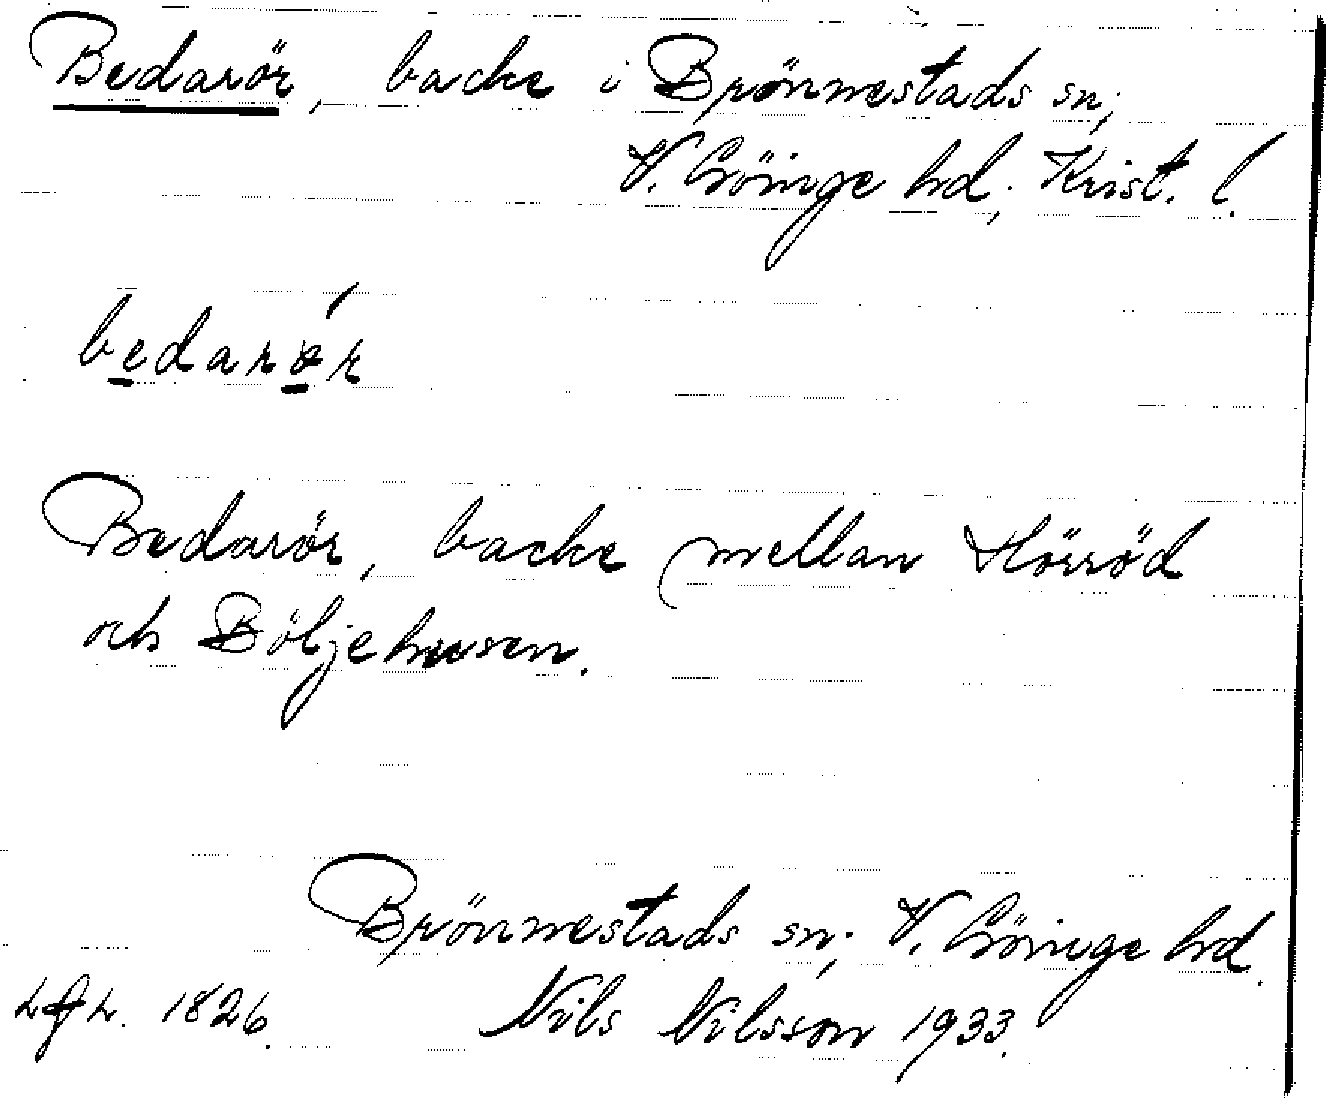 Bedarör, backe i Brönnestads sn,
V. Göinge hd, Krist. l.
bedarør
Bedarör, backe mellan Hörröd
och Böljehusen.
Brönnestads sn, V. Göinge hd.
1826. Nils Nilsson 1933.